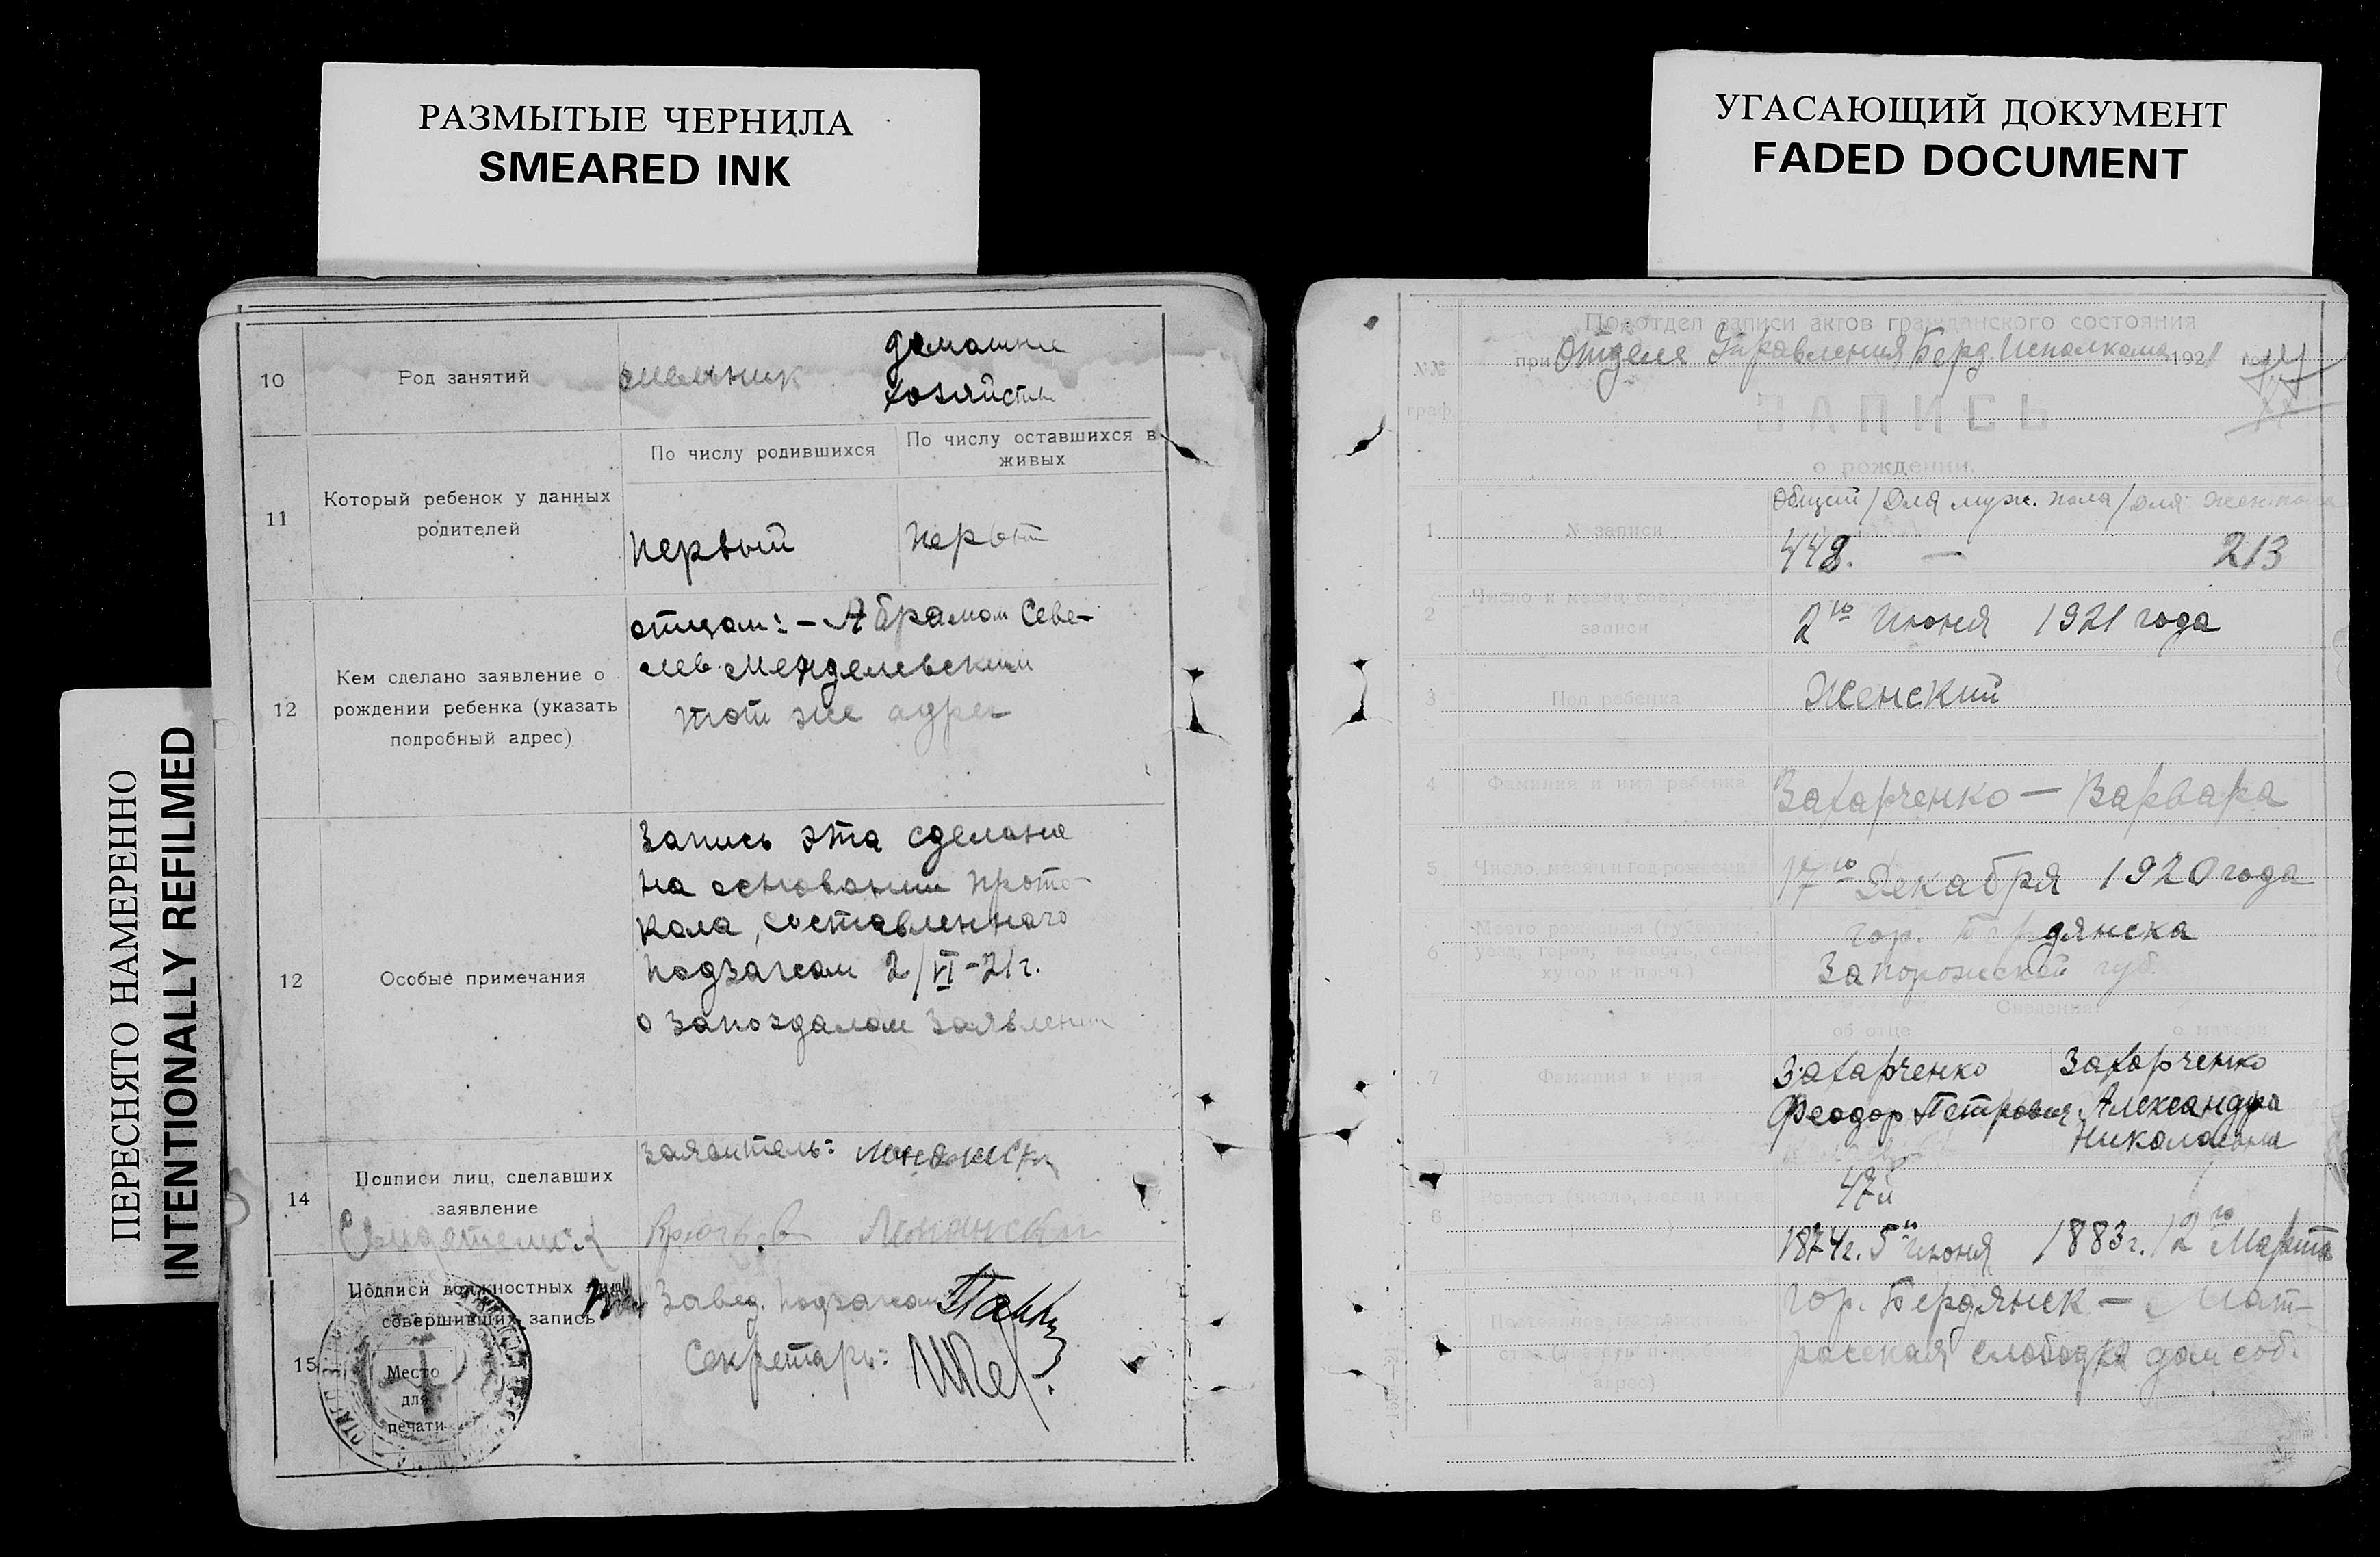 РАЗМЫТЫЕ ЧЕРНИЛА
SMEARED INK
ПЕРЕСНЯТО НАМЕРЕННО
INTENTIONALLY REFILMED
10
Род занятий
мельник
домашнее
хозяйство
11
Который ребенок у данных
родителей
По числу родившихся
По числу оставшихся в
живых
первый
первый
12
Кем сделано заявление о
рождении ребенка (указать
подробный адрес)
отцом: – Абрамом Севе-
лев. Менделевским
тот же адрес
12
Особые примечания
Запись эта сделана
на основании прото-
кола, составленнаго
подзагсом 2/VI-21г.
о запоздалом заявлении
14
Подписи лиц, сделавших
заявление
Свидетели:
заявитель:
15
Подписи должностных лиц,
совершивших запись
Место
для
печати
Завед. подзагсом
Секретарь:
УГАСАЮЩИЙ ДОКУМЕНТ
FADED DOCUMENT
Подотдел записи актов гражданского состояния
№№
граф.
при Отделе Управления Берд. Исполкома 1921 год
ЗАПИСЬ
о рождении.
1
№ записи
Общий / Для муж. пола / Для жен. пола
448. — 213
2
Число и месяц совершения
записи
2го Июня 1921 года
3
Пол ребенка
Женский
4
Фамилия и имя ребенка
Захарченко — Варвара
5
Число, месяц и год рождения
17го Декабря 1920 года
6
Место рождения (губ.,
уезд, город, волость, село,
хутор и проч.)
гор. Бердянска
Запорожской губ.
Сведения:
об отце
о матери
7
Фамилия и имя
Захарченко
Феодор Петрович
Захарченко
Александра
Николаевна
8
Возраст (число, месяц и год
47й
1874г. 5го июня
1883г. 12го Марта
адрес)
гор. Бердянск — Мат-
росская слободка дом соб.